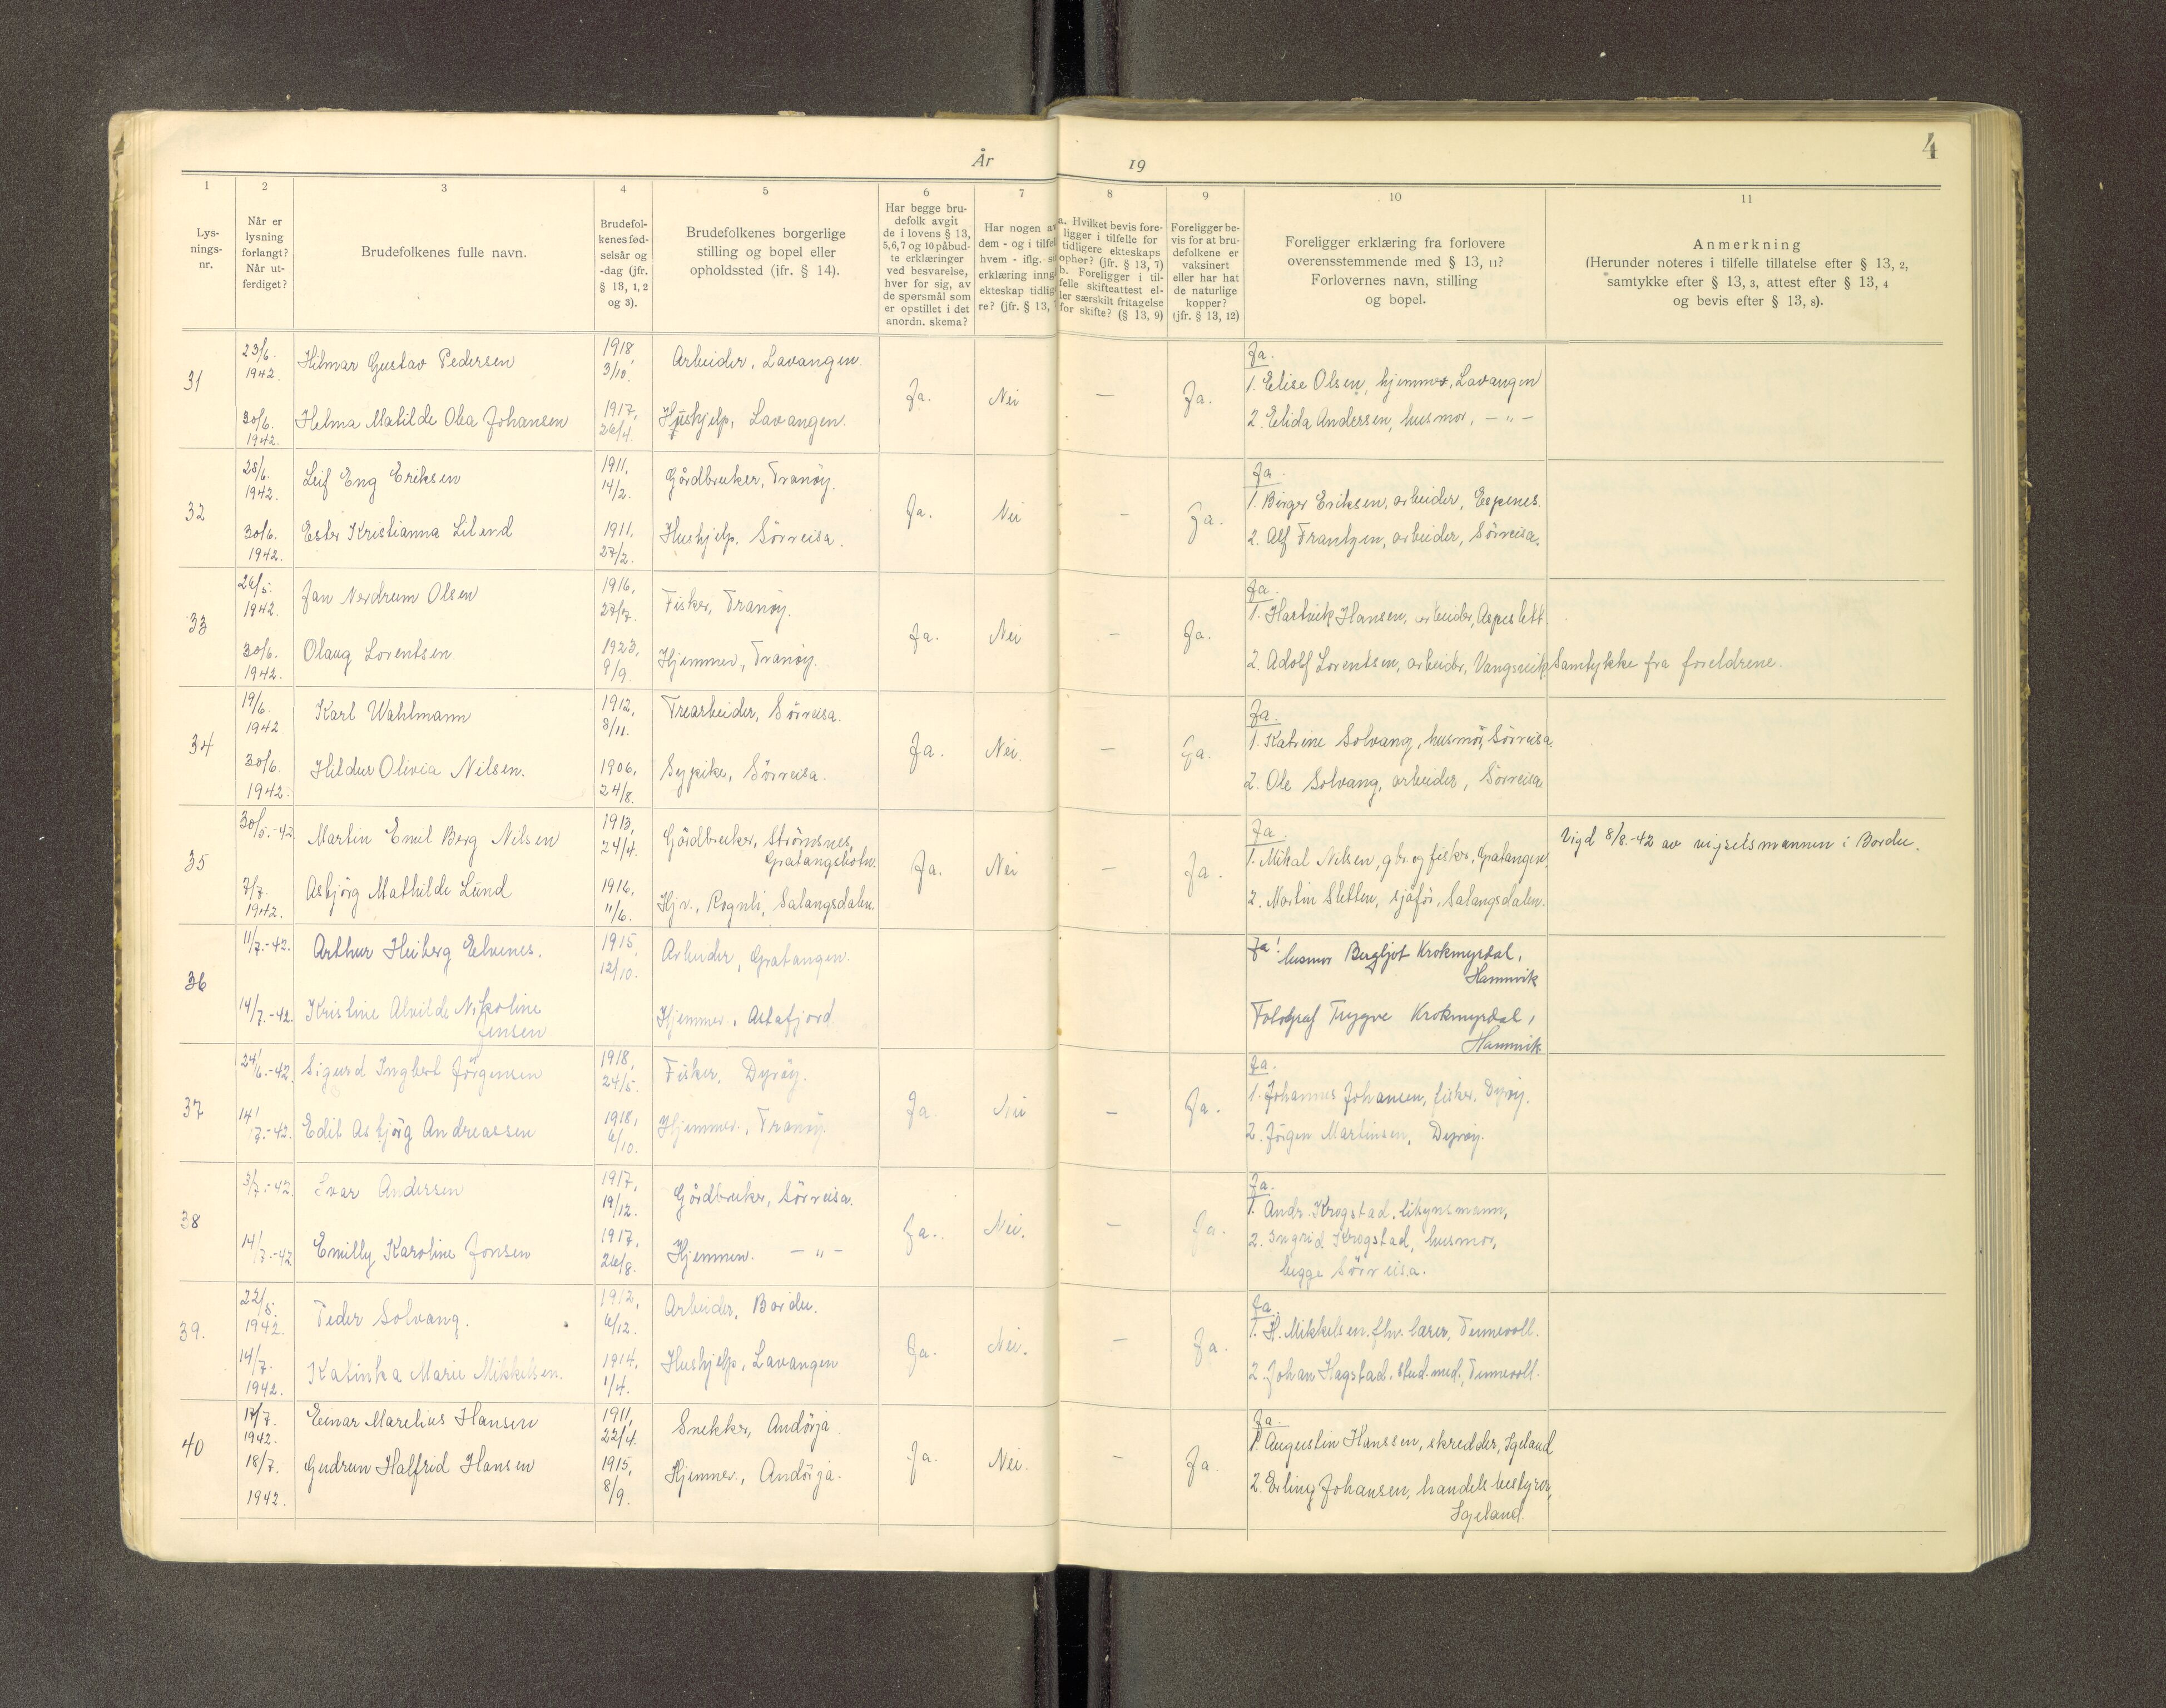 År 19
4
1 2 3 4 5 6 7 8 9 10 11
Lys-
nings-
nr.
Når er
lysning
forlangt?
Når ut-
ferdiget?
Brudefolkenes fulle navn.
Brudefol-
kenes fød-
selsår og
-dag (jfr.
§ 13, 1, 2
og 3).
Brudefolkenes borgerlige
stilling og bopel eller
opholdssted (ifr. § 14).
Har begge bru-
defolk avgit
de i lovens § 13,
5,6,7 og 10 påbud-
te erklæringer
ved besvarelse,
hver for sig, av
de spørsmål som
er opstillet i det
anordn. skema?
Har nogen av
dem - og i tilfel
hvem - iflg. s
erklæring inng
ekteskap tidlig
re? (jfr. § 13,
a. Hvilket bevis fore-
ligger i tilfelle for
tidligere ekteskaps
ophør? (jfr. § 13, 7)
b. Foreligger i til-
felle skifteattest el-
ler særskilt fritagelse
for skifte? (§ 13, 9)
Foreligger be-
vis for at bru-
defolkene er
vaksinert
eller har hat
de naturlige
kopper?
(jfr. § 13, 12)
Foreligger erklæring fra forlovere
overensstemmende med § 13, 11?
Forlovernes navn, stilling
og bopel.
Anmerkning
(Herunder noteres i tilfelle tillatelse efter § 13, 2,
samtykke efter § 13, 3, attest efter § 13, 4
og bevis efter § 13, 8).
31
23/6.
1942.
Hilmar Gustav Pedersen
1918,
3/10.
Arbeider, Lavangen.
30/6.
1942.
Helma Matilde Olea Johansen
1917,
26/4.
Hushjelp, Lavangen.
Ja. Nei — Ja.
Ja.
1. Elise Olsen, hjemmev, Lavangen
2. Elida Andersen, husmor, — " —
32
25/6.
1942.
Leif Eng Eriksen
1911,
14/2.
Gårdbruker, Tranöy.
30/6.
1942.
Ester Kristianna Lilend
1911,
27/2.
Hushjelp, Sörreisa.
Ja. Nei — Ja.
Ja.
1. Birger Eriksen, arbeider, Espenes.
2. Alf Frantzen, arbeider, Sörreisa.
33
26/5.
1942.
Jan Nerdrum Olsen
1916,
27/7.
Fisker, Tranöy.
30/6.
1942.
Olaug Lorentsen
1923,
9/9.
Hjemmev., Tranöy.
Ja. Nei — Ja.
Ja.
1. Hartvik Hansen, arbeider, Aspeslett.
2. Adolf Lorentsen, arbeider, Vangsvik.
Samtykke fra foreldrene.
34
19/6.
1942
Karl Wahlmann
1912,
8/11.
Trearbeider, Sörreisa.
30/6.
1942.
Hildur Olivia Nilsen.
1906,
24/8.
Sypike, Sörreisa.
Ja. Nei. — Ja.
Ja.
1. Katrine Solvang, husmor, Sörreisa.
2. Ole Solvang, arbeider, Sörreisa
35
30/5.-42.
Martin Emil Berg Nilsen
1913,
24/4.
Gårdbruker, Strömsnes,
Gratangsbotn.
7/7.
1942.
Asbjörg Mathilde Lund
1916,
11/6.
Hjv., Rognli, Salangsdalen.
Ja. Nei — Ja.
Ja.
1. Mikal Nilsen, gbr. og fisker, Gratangen,
2. Martin Sletten, sjåför, Salangsdalen.
Vigd 8/8.-42 av vigselsmannen i Bardu.
36
11/7.-42.
Arthur Heiberg Elvenes.
1915,
12/10.
Arbeider, Gratangen.
14/7.-42.
Kristine Alvilde Nikoline
Jensen
Hjemmev., Astafjord
Ja! husmor Bergljot Krokmyrdal,
Hamnvik
Fotograf Trygve Krokmyrdal,
Hamnvik
37
24/6.-42.
Sigurd Ingbert Jörgensen
1918,
24/5.
Fisker, Dyröy.
14/7.-42.
Edit Asbjörg Andreassen
1918,
6/10.
Hjemmev., Tranöy.
Ja. Nei — Ja.
Ja.
1. Johannes Johansen, fisker, Dyröy.
2. Jörgen Martinsen, Dyröy.
38
3/7.-42.
Ivar Andersen
1917,
19/12.
Gårdbruker, Sörreisa.
14/7.-42
Emilly Karoline Jonsen
1917,
26/8.
Hjemmev. — " —
Ja. Nei. — Ja.
Ja.
1. Andr. Krogstad, tilsynsmann,
2. Ingrid Krogstad, husmor,
begge Sörreisa.
39.
22/5.
1942.
Peder Solvang.
1912,
6/12.
Arbeider, Bardu.
14/7.
1942.
Katinka Marie Mikkelsen.
1914,
1/4.
Hushjelp, Lavangen
Ja. Nei. — Ja.
Ja.
1. H. Mikkelsen, fhv. lærer, Tennevoll.
2. Johan Hagstad, stud. med., Tennevoll.
40
17/7.
1942.
Einar Marelius Hansen
1911,
22/4.
Snekker, Andörja.
18/7.
1942.
Gudrun Halfrid Hansen
1915,
8/9.
Hjemmev., Andörja.
Ja. Nei. — Ja.
Ja.
1. Augustin Hanssen, skredder, Igeland
2. Erling Johansen, handelsbestyrer,
Igeland.